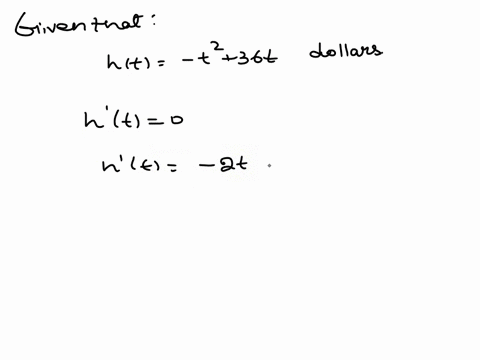 Given that:
h(t) = -t²+36t dollars
h'(t) = 0
h'(t) = -2t